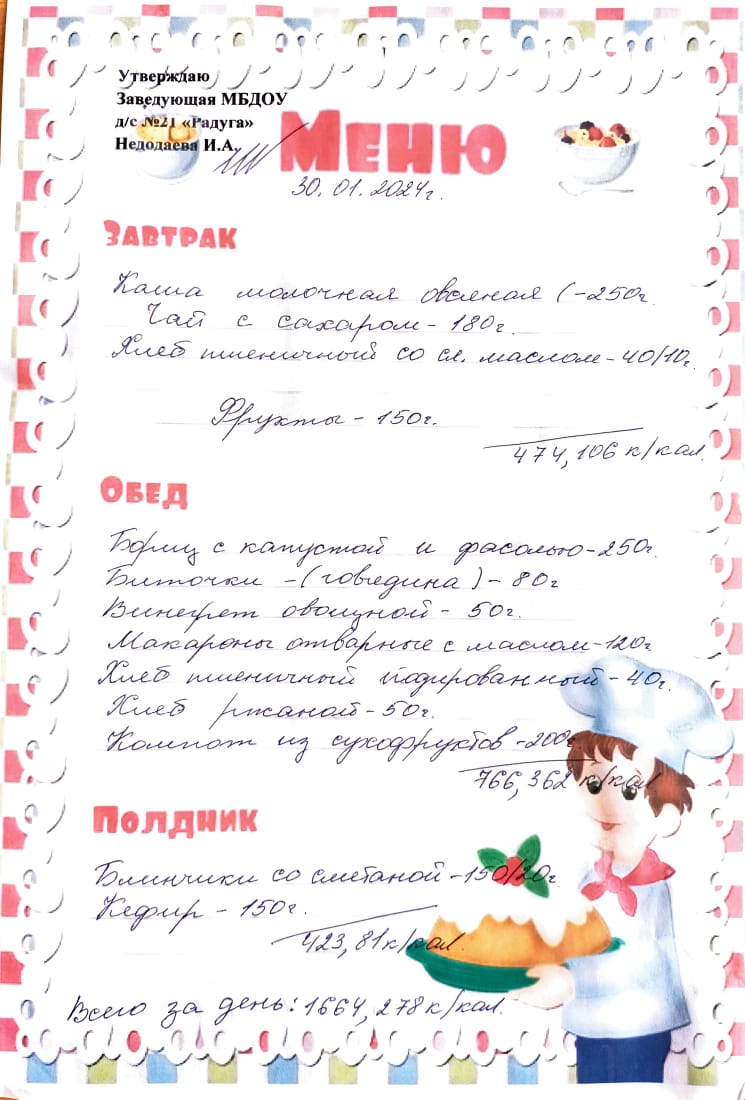 Утверждаю
Заведующая МБДОУ
д/с №21 «Радуга»
Недодаева И.А.
Меню
30.01.2024г.
Завтрак
Каша молочная овсяная (-250г
Чай с сахаром - 180г.
Хлеб пшеничный со сл. маслом - 40/10г.
Фрукты - 150г.
474,106 к/кал.
Обед
Борщ с капустой и фасолью - 250г.
Биточки - (говядина) - 80г
Винегрет овощной - 50г.
Макароны отварные с маслом - 120г
Хлеб пшеничный йодированный - 40г.
Хлеб ржаной - 50г.
Компот из сухофруктов - 200г.
766,362 к/кал
Полдник
Блинчики со сметаной - 150/20г.
Кефир - 150г.
423,81 к/кал.
Всего за день: 1664,278 к/кал.